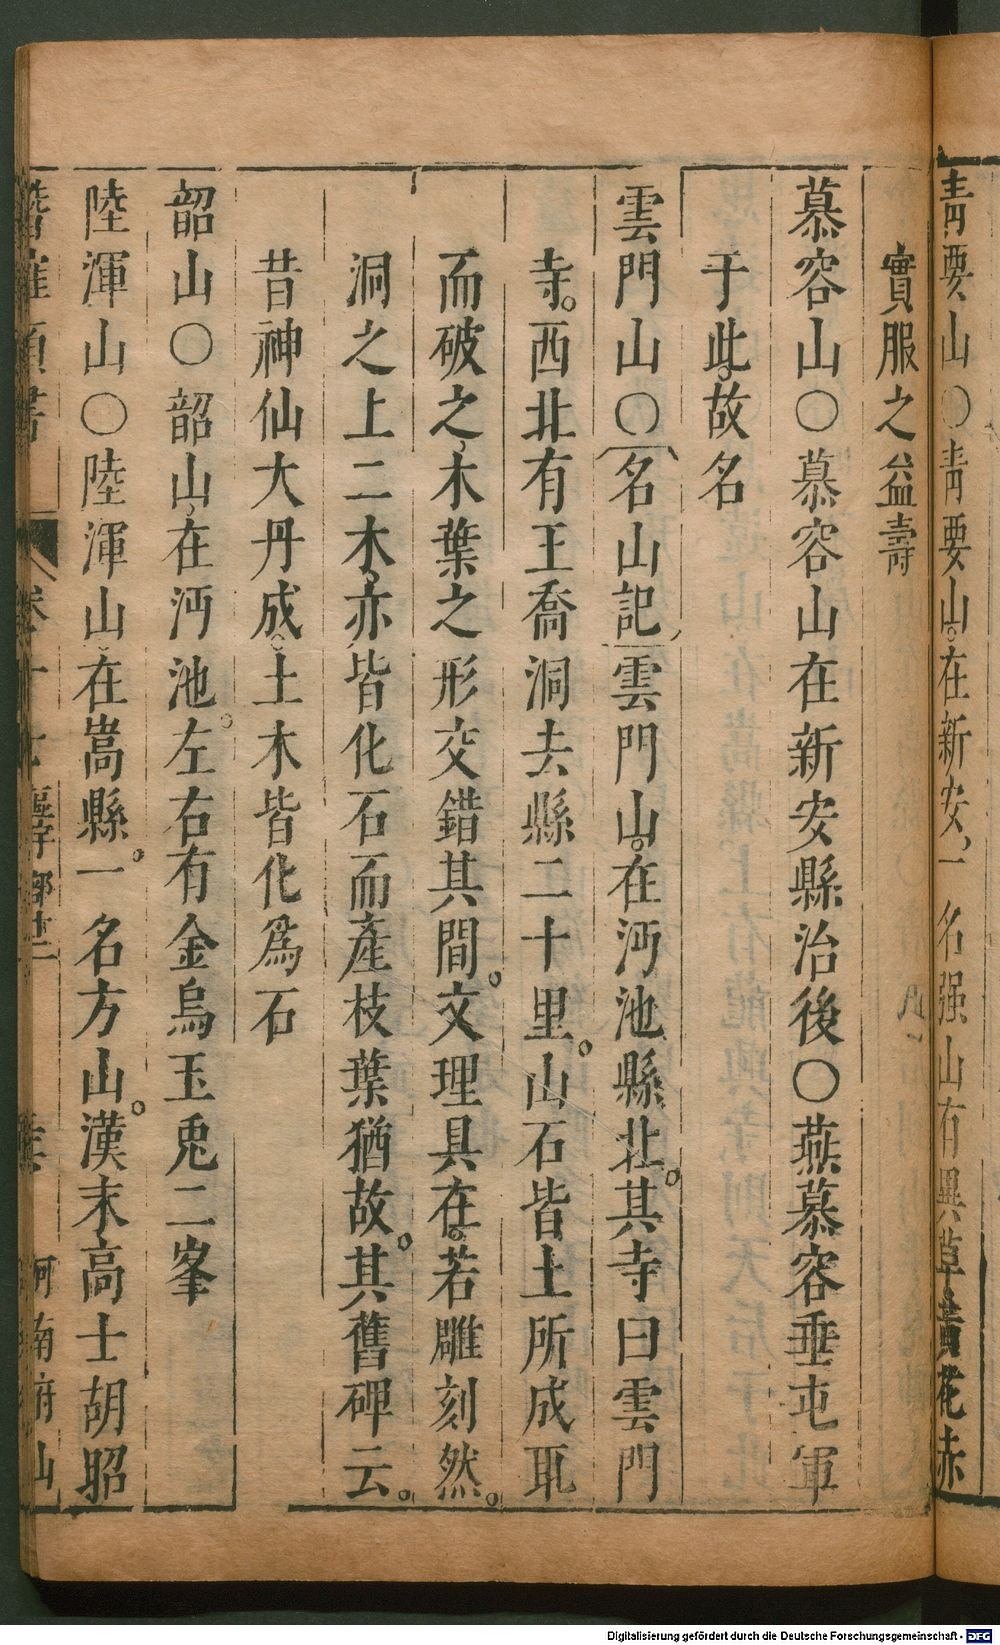 青要山○青要山。在新安、一名强山有異草黃花赤
實服之益壽
慕容山○慕容山在新安縣治後○燕慕容垂屯軍
于此。故名
雲門山○名山記雲門山。在沔池縣北。其寺曰雲門
寺。西北有王喬洞去縣二十里。山石皆土所成取
而破之、木葉之形交錯其間。文理具在。若雕刻然。
洞之上二木、亦皆化石而產枝葉猶故。其舊碑云。
昔神仙大丹成。土木皆化爲石
韶山○韶山、在沔池。左右有金烏玉兎二峯
陸渾山○陸渾山。在嵩縣。一名方山。漢末高士胡昭
潛確類書 卷十七 區宇部廿二 河南府山
Digitalisierung gefördert durch die Deutsche Forschungsgemeinschaft - DFG